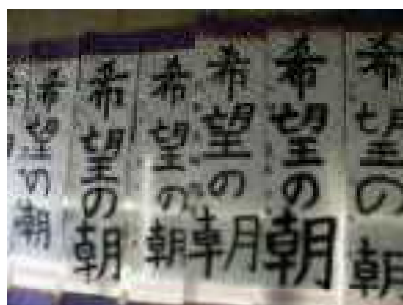 希望の朝
希望の朝
希望の朝
希望の朝
希望の朝
希望の朝